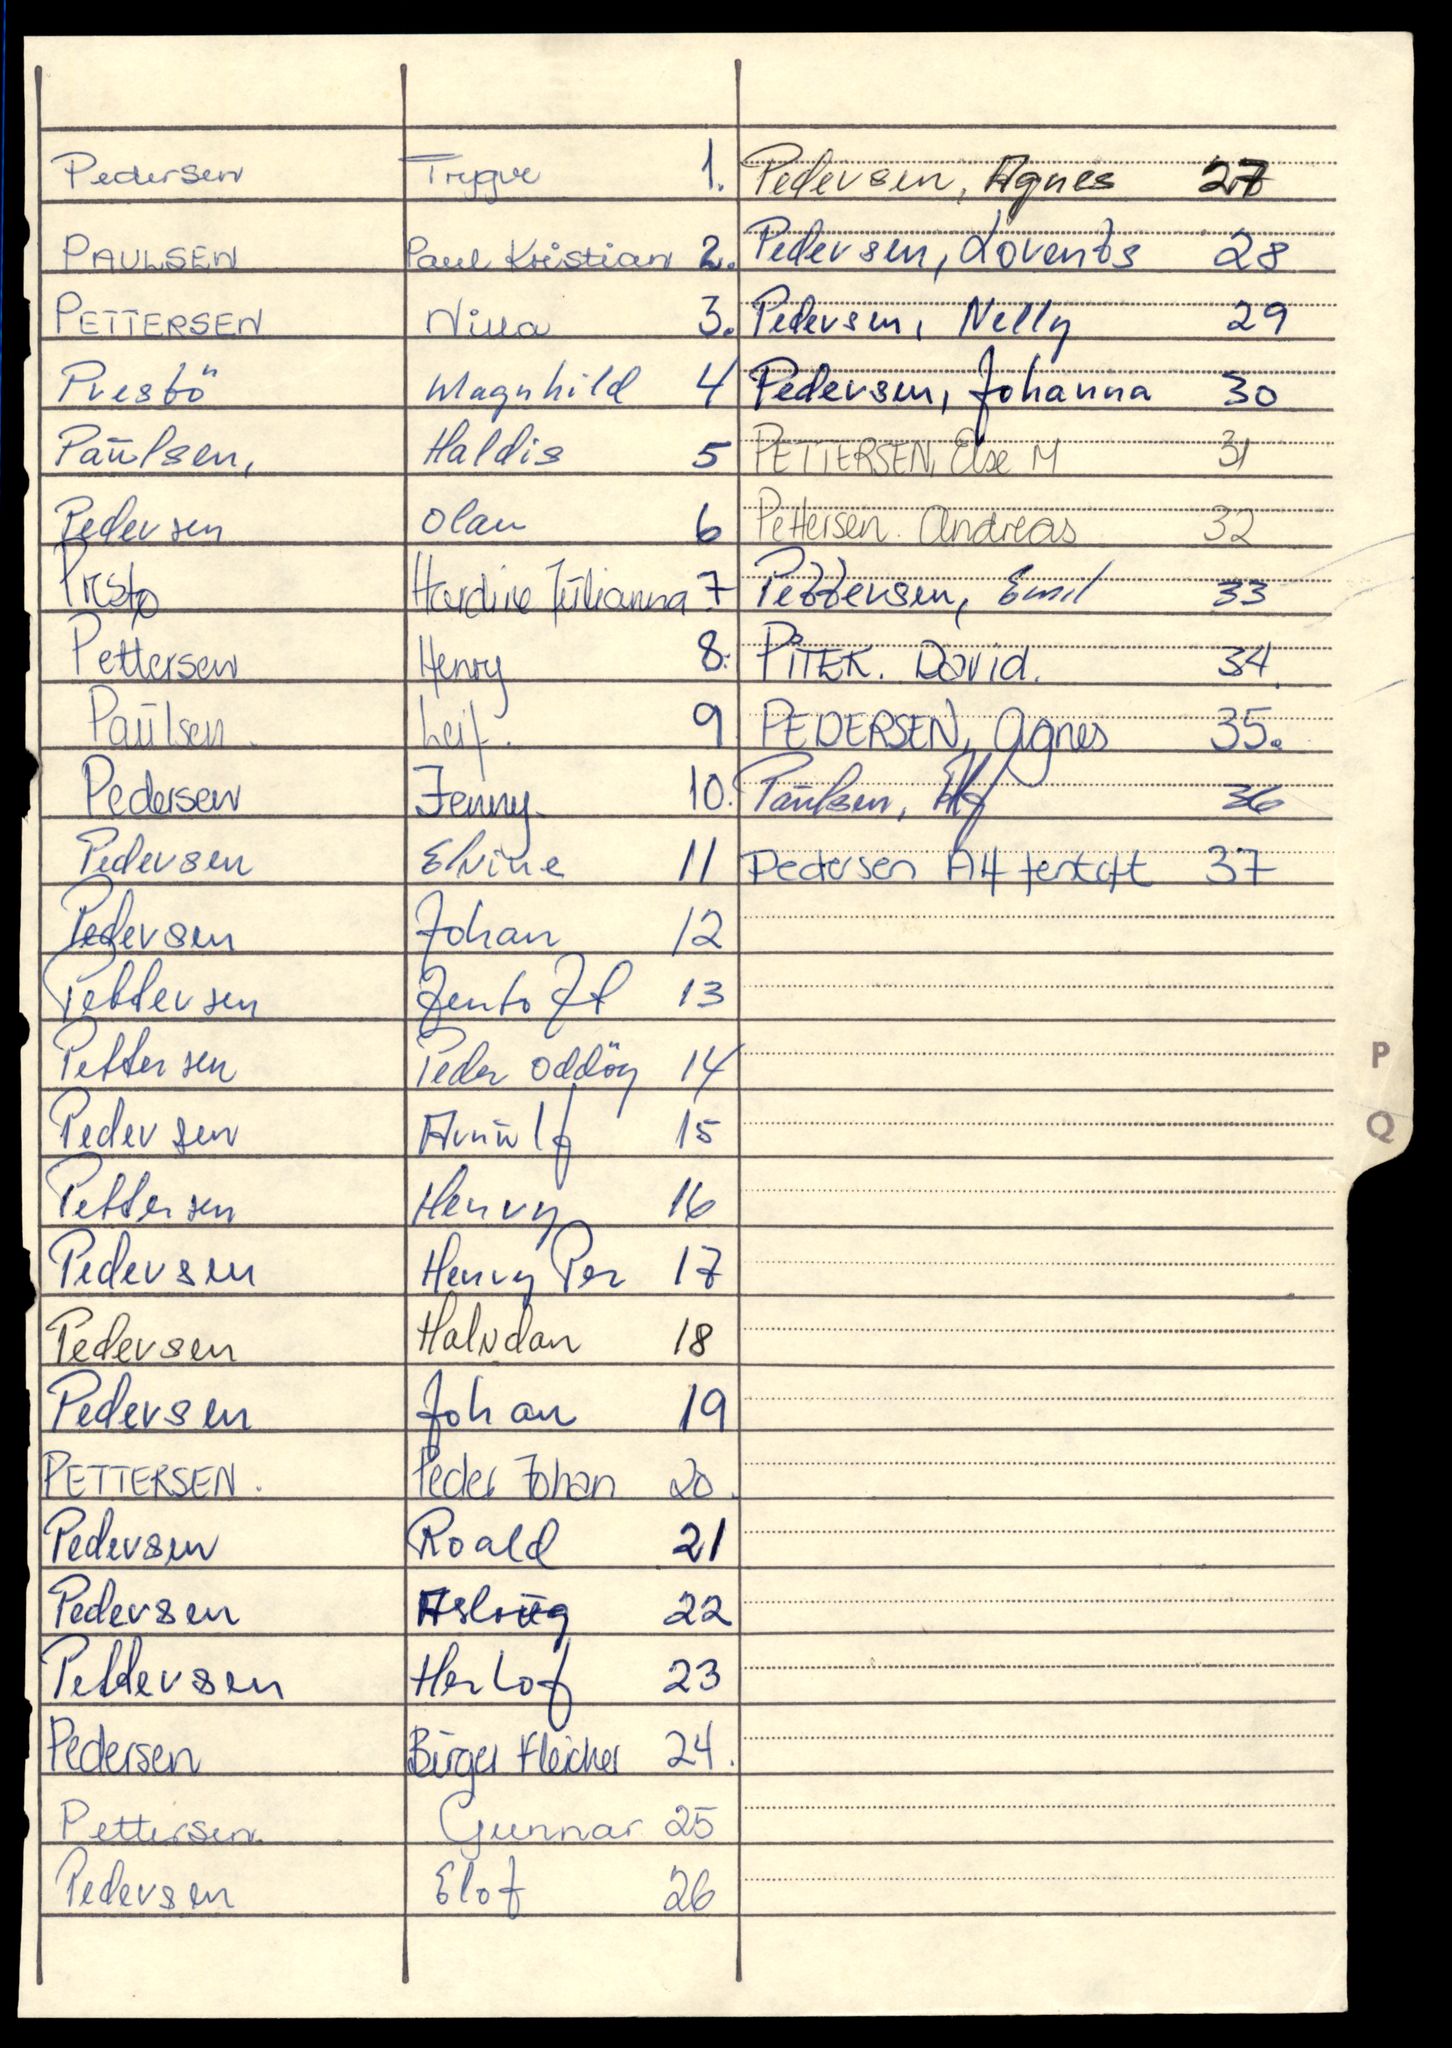 Pedersen Trygve 1.
PAULSEN Paul Kristian 2.
PETTERSEN Nilla 3.
Prestö Magnhild 4
Paulsen, Haldis 5
Pedersen Olau 6
Prestø Hardine Julianna 7
Pettersen Henry 8.
Paulsen. Leif. 9
Pedersen Jenny. 10.
Pedersen Elvine 11
Pedersen Johan 12
Pettersen Jentoft 13
Pettersen Peder Oddöy 14
Pedersen Arnulf 15
Pettersen Henry 16
Pedersen Henry Per 17
Pedersen Halvdan 18
Pedersen Johan 19
PETTERSEN. Peder Johan 20.
Pedersen Roald 21
Pedersen Aslaug 22
Pettersen Herlof 23
Pedersen Birger Fleicher 24.
Pettersen Gunnar 25
Pedersen Elof 26
Pedersen, Agnes 27
Pedersen, Lorents 28
Pedersen, Nelly 29
Pedersen, Johanna 30
PETTERSEN, Else M 31
Pettersen. Andreas 32
Pettersen, Emil 33
PITEK. David. 34.
PEDERSEN, Agnes 35.
Paulsen, 36
Pedersen Alf Jentoft 37
P
Q